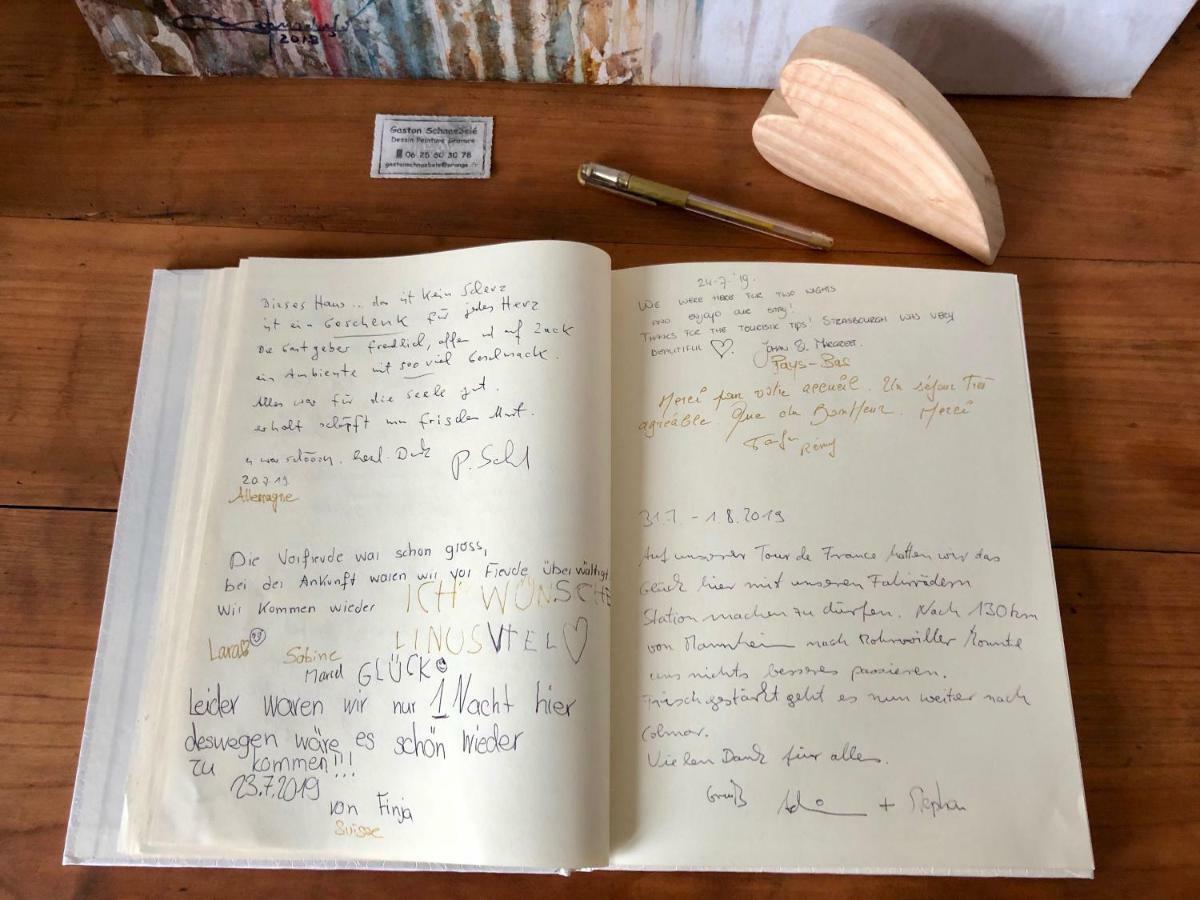 2018
Gaston Schnœbelé
Dessin Peinture Gravure
06 25 60 30 78
Dieses Haus .. das ist kein Scherz
ist ein Geschenk für jedes Herz
Die Gastgeber freundlich, offen und auf Zack
ein Ambiente mit soo viel Geschmack.
Alles war für die Seele gut.
erholt schöpft man frischen Mut.
es war schöön. herzl. Dank
20.7.19.
Allemagne
Die Vorfreude war schon gross,
bei der Ankunft waren wir vor Freude überwältigt
Wir kommen wieder
ICH WÜNSCHE
LINUS VIEL ♡
GLÜCK
Lara
Sabine
Marcel
Leider waren wir nur 1 Nacht hier
deswegen wäre es schön wieder
zu kommen!!!
23.7.2019
von Finja
Suisse
24-7-'19.
WE WERE HERE FOR TWO NIGHTS
AND ENJOYD OUR STAY!
THANKS FOR THE TOURISTIK TIPS! STRASBOURG WAS VERY
BEAUTIFUL ♡. JOHAN & MARGREET.
Pays-Bas
Merci pour votre accueil. Un séjour Très
agréable. Que du Bonheur. Merci
Rémy
31.7. - 1.8.2019
Auf unserer Tour de France hatten wir das
Glück hier mit unseren Fahrrädern
Station machen zu dürfen. Nach 130 km
von Mannheim nach Rohrwiller konnte
uns nichts besseres passieren.
Frisch gestärkt geht es nun weiter nach
Colmar.
Vielen Dank für alles.
Gruß
+ Stephan